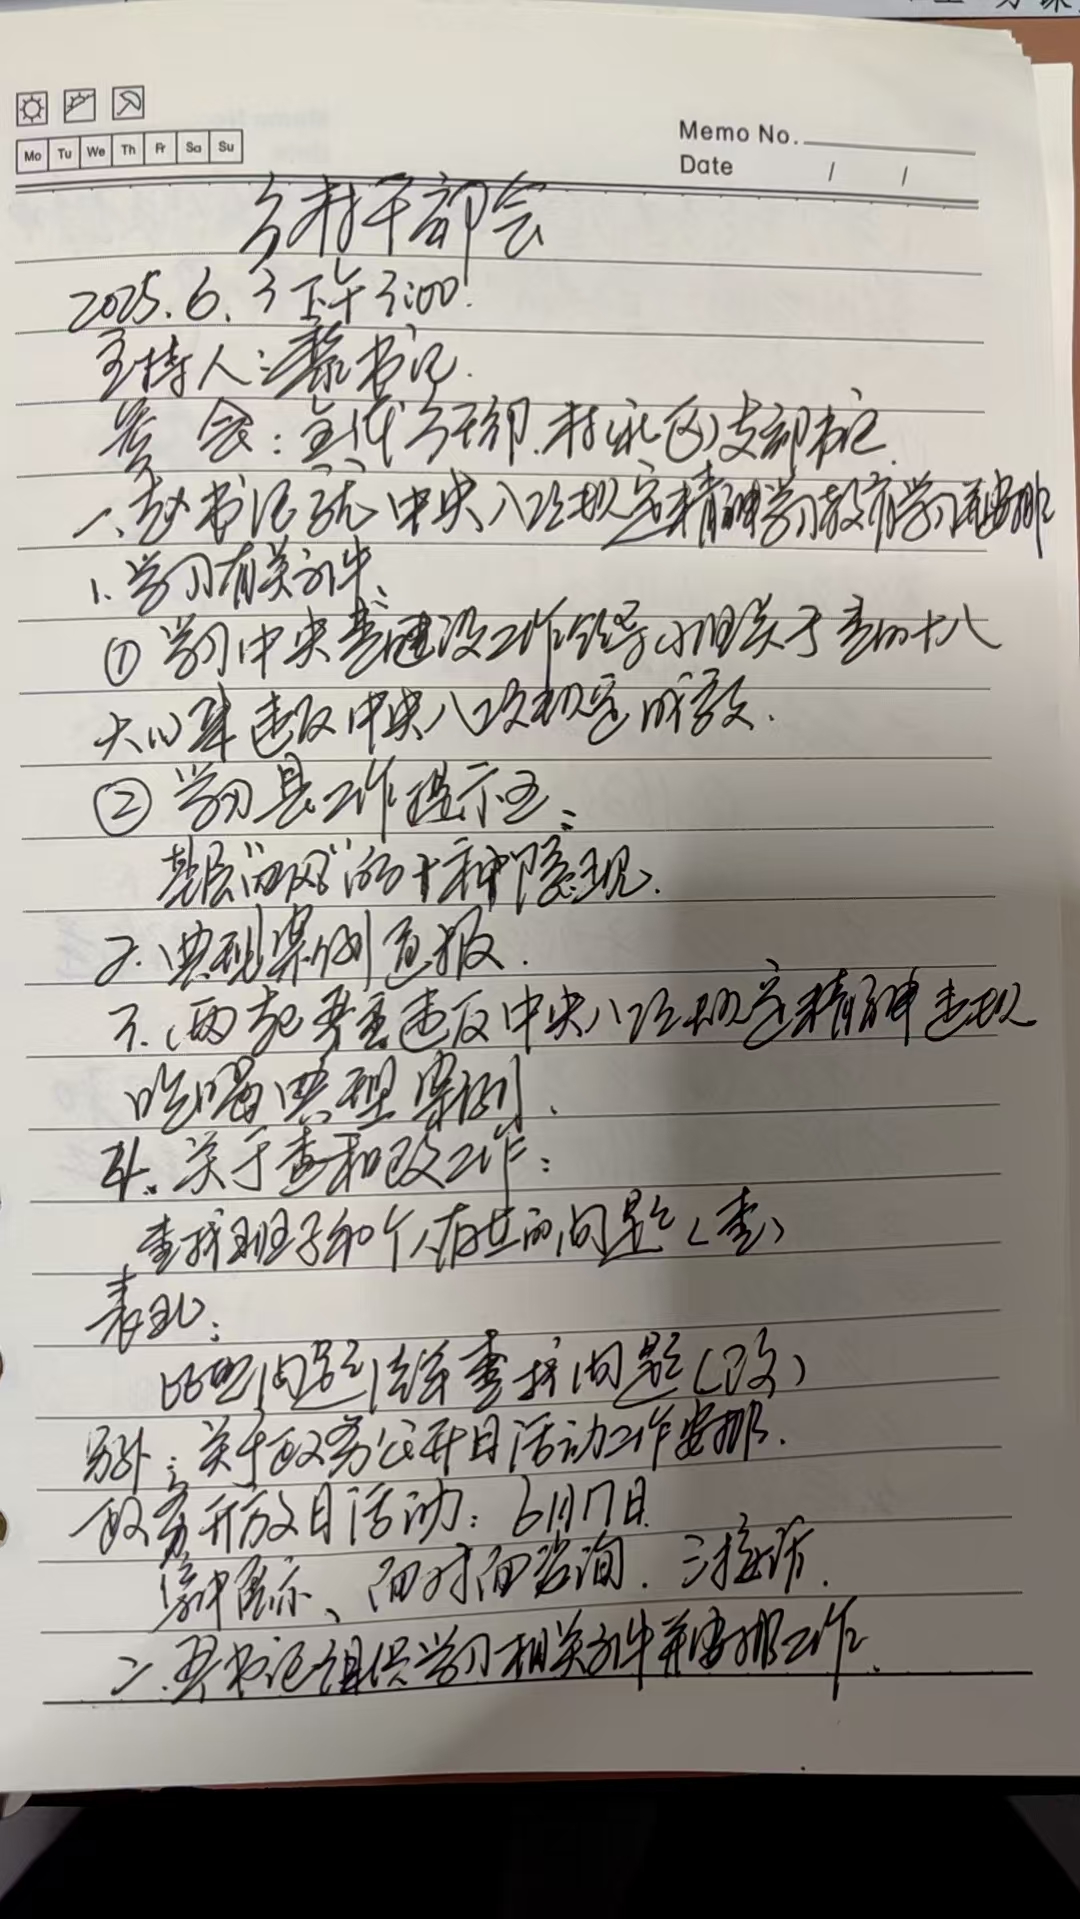 Memo No.
Date / /
Mo Tu We Th Fr Sa Su
乡村干部会
2025.6.3下午3:00.
主持人:蔡书记.
参会:全体乡干部.村(社区)支部书记.
一、赵书记就中央八项规定精神学习教育学习安排
1.学习有关文件、
①学习中央党建设工作领导小组关于党的十八
大以来违反中央八项规定成效.
②学习县工作提示五:
基层"四风"的十种隐现.
2.典型案例通报.
3.两起严重违反中央八项规定精神违规
吃喝典型案例.
4.关于查和改工作:
查找班子和个人存在的问题(查)
表现:
问题清单查找问题(改)
另外:关于政务公开日活动工作安排.
政务开放日活动:6月17日
集中展示、面对面咨询.三接访.
二.书记组织学习相关文件并安排工作.